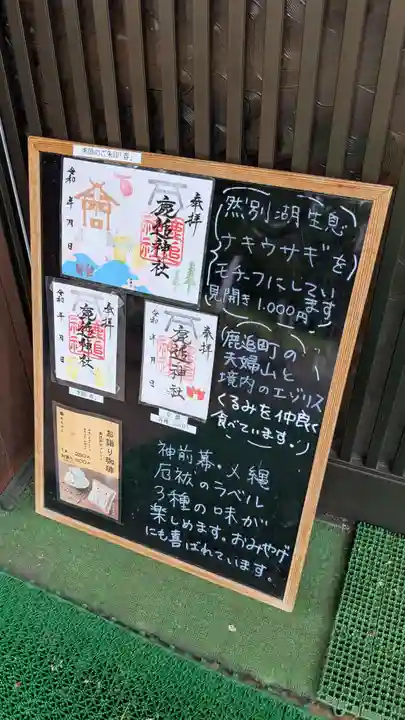 季節のご朱印「春」
奉拝
鹿追神社
令和 年 月 日
然別湖生息
ナキウサギを
モチーフにしてい
ます
見開き1.000円
奉拝
鹿追神社
令和 年 月 日
奉拝
鹿追神社
令和 年 月 日
鹿追町の
夫婦山と
境内のエゾリス
くるみを仲良く
食べています。
お譲り珈琲
神前幕・〆縄
厄祓のラベル
3種の味が
楽しめます。おみやげ
にも喜ばれています。